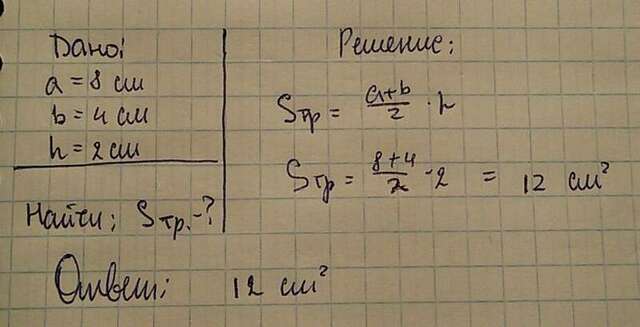 Дано:
a = 8 см
b = 4 см
h = 2 см
Найти: Sтр. - ?
Решение:
Sтр = (a+b)/2 · h
Sтр = (8+4)/2 · 2 = 12 см²
Ответ: 12 см²